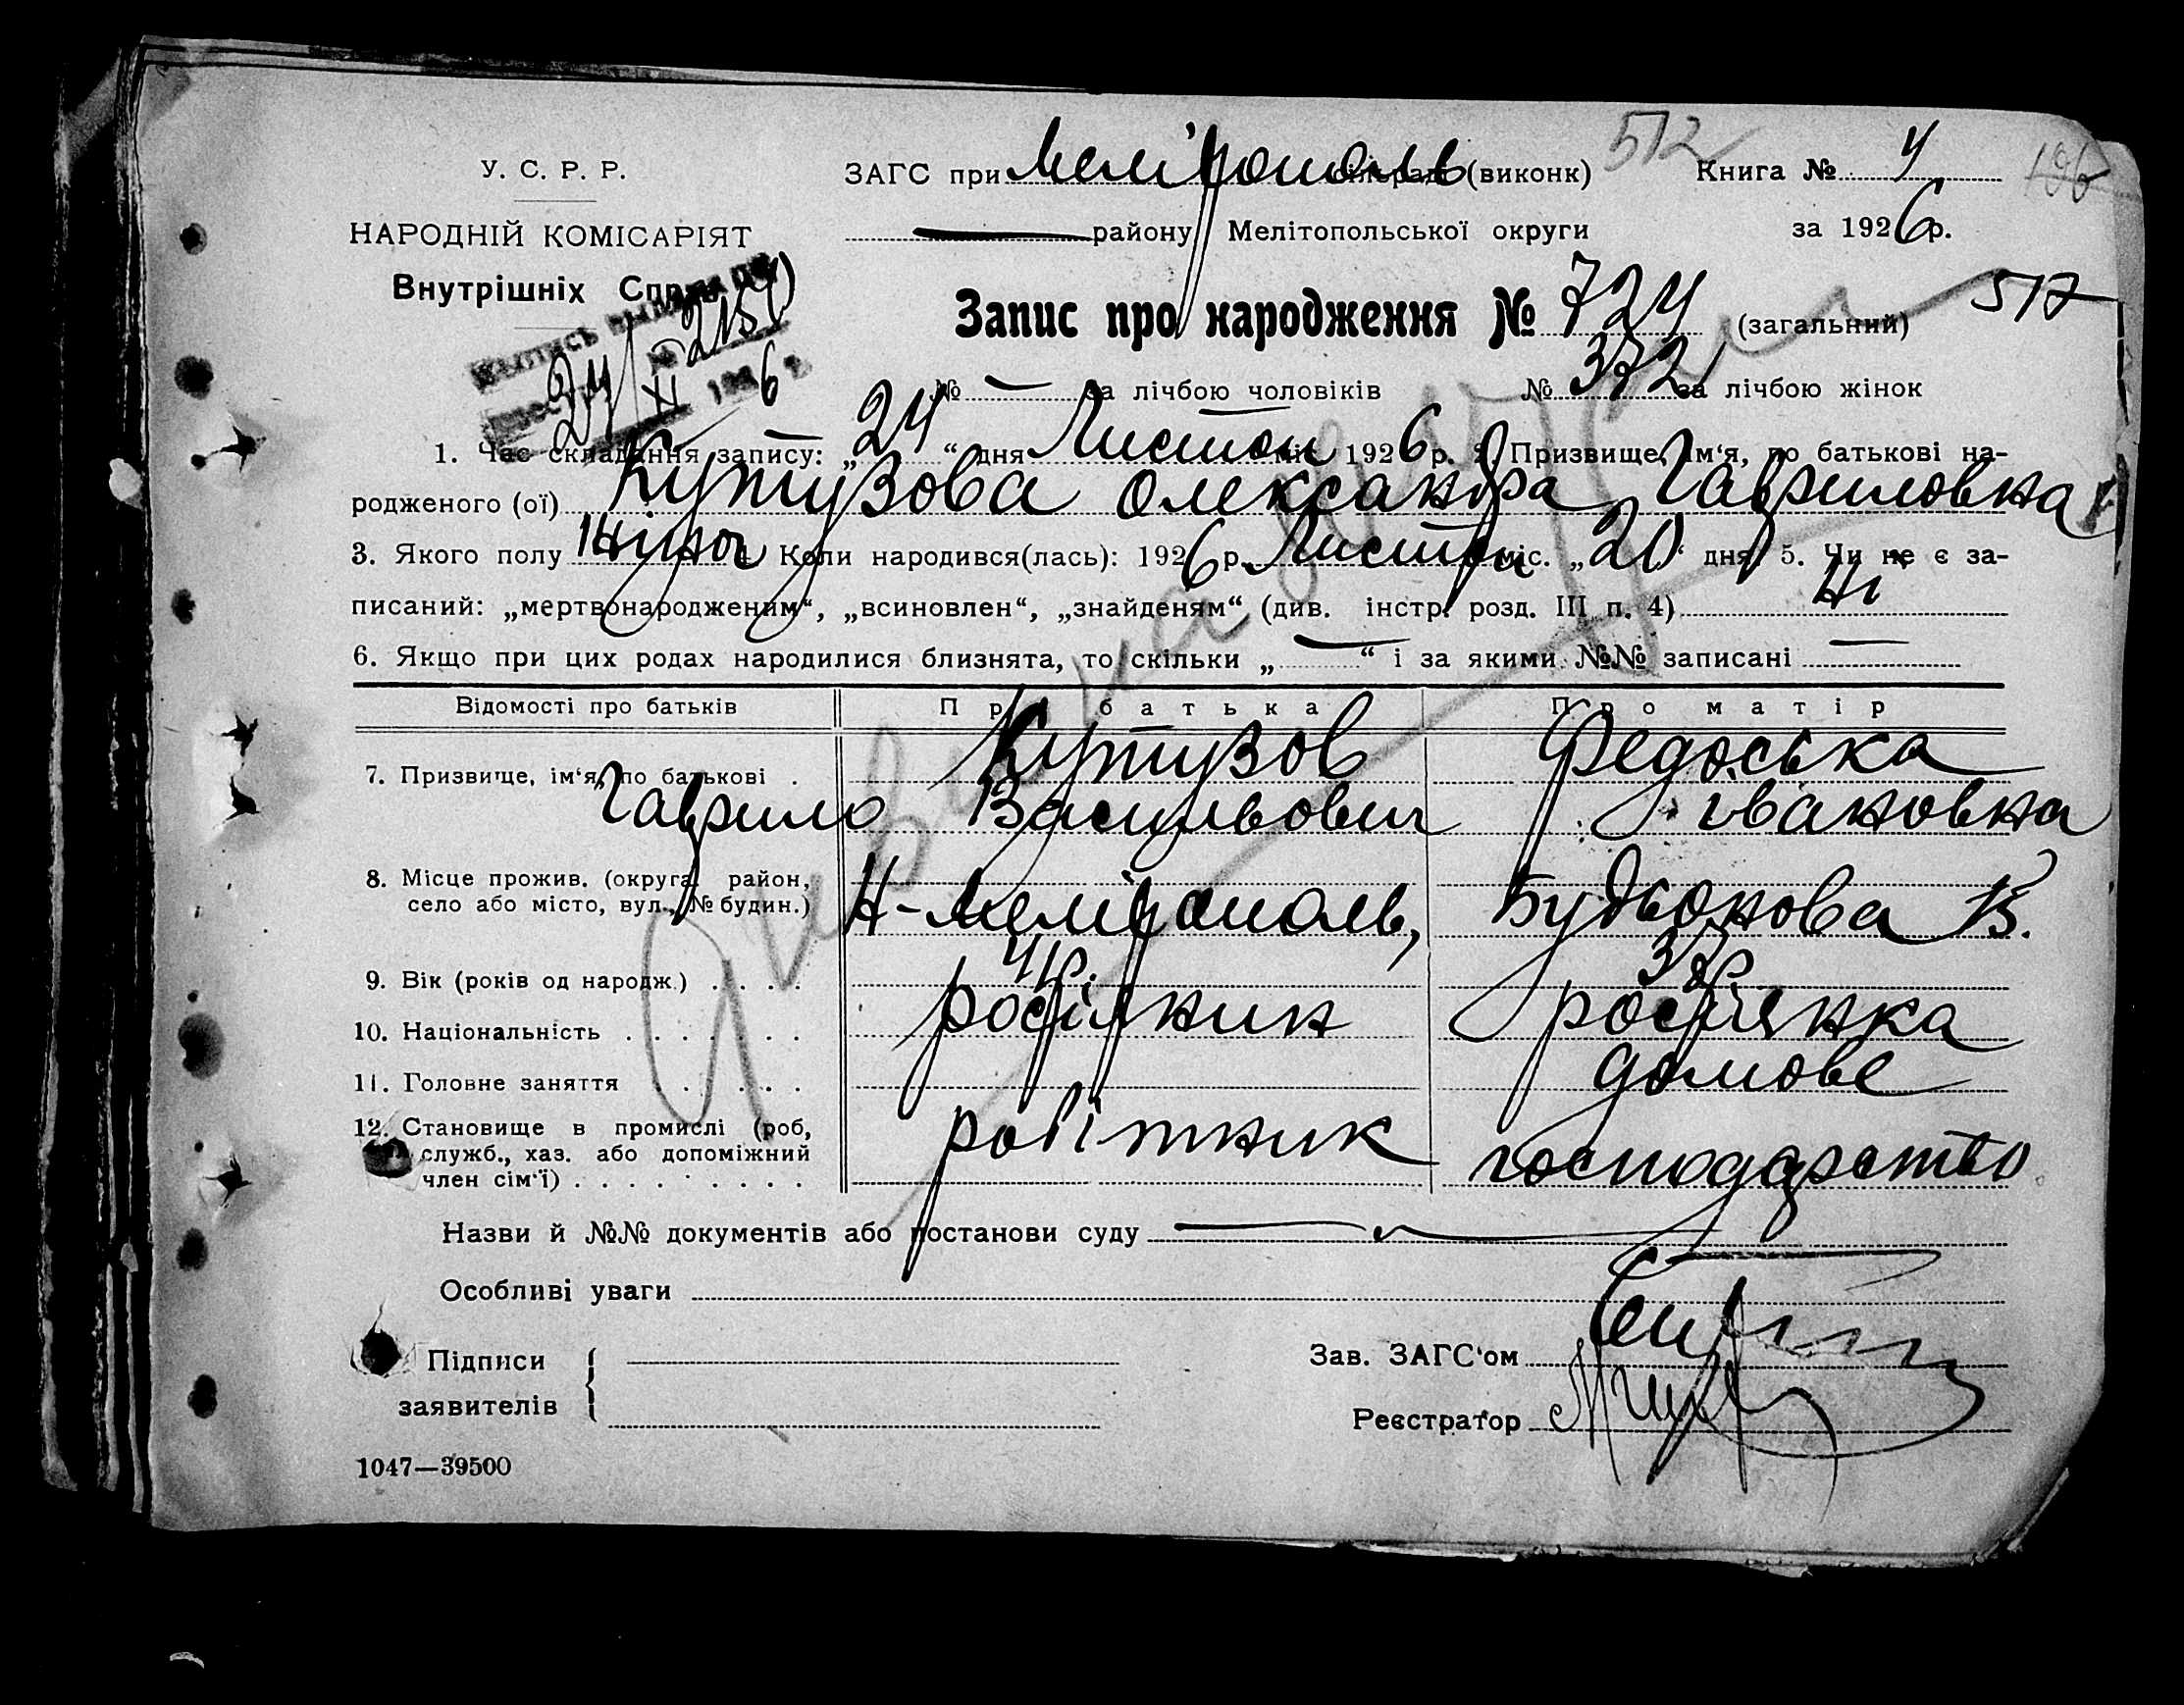 512
У. С. Р. Р. ЗАГС при Мелітополь сільраді (виконк) Книга № 4 196
НАРОДНІЙ КОМІСАРІЯТ району Мелітопольської округи за 1926 р.
Внутрішніх Справ
Запис про народження № 724 (загальний) 517
№ — за лічбою чоловіків № 372 за лічбою жінок
Выпись выдана
№ 2157
24/XI 1926 г.
1. Час складання запису: „24“ дня Листоп міс. 1926 р. 2. Призвище, ім‘я, по батькові на-
родженого (ої) Кутузова Олександра Гавриловна
3. Якого полу жіноч 4. Коли народився(лась): 1926 р. Листоп міс. „20“ дня 5. Чи не є за-
писаний: „мертвонародженим“, „всиновлен“, „знайденям“ (див. інстр. розд. III п. 4) Ні
6. Якщо при цих родах народилися близнята, то скільки „—“ і за якими №№ записані —
Відомості про батьків Про батька Про матір
7. Призвище, ім‘я, по батькові . Кутузов Федоська
Гаврило Васильович Івановна
8. Місце прожив. (округа, район,
село або місто, вул., № будин.) Н-Мелітополь, Будьонова 13.
9. Вік (років од народж.) . . . . 41 р. 37 р.
10. Національність . . . . . . . росіянин росіянка
11. Головне заняття . . . . . . домове
12. Становище в промислі (роб,
служб., хаз. або допоміжний
член сім‘ї) . . . . . . . . . робітник господарство
Назви й №№ документів або постанови суду —
Особливі уваги
Підписи
заявителів
Зав. ЗАГС‘ом
Реєстратор
1047—39500